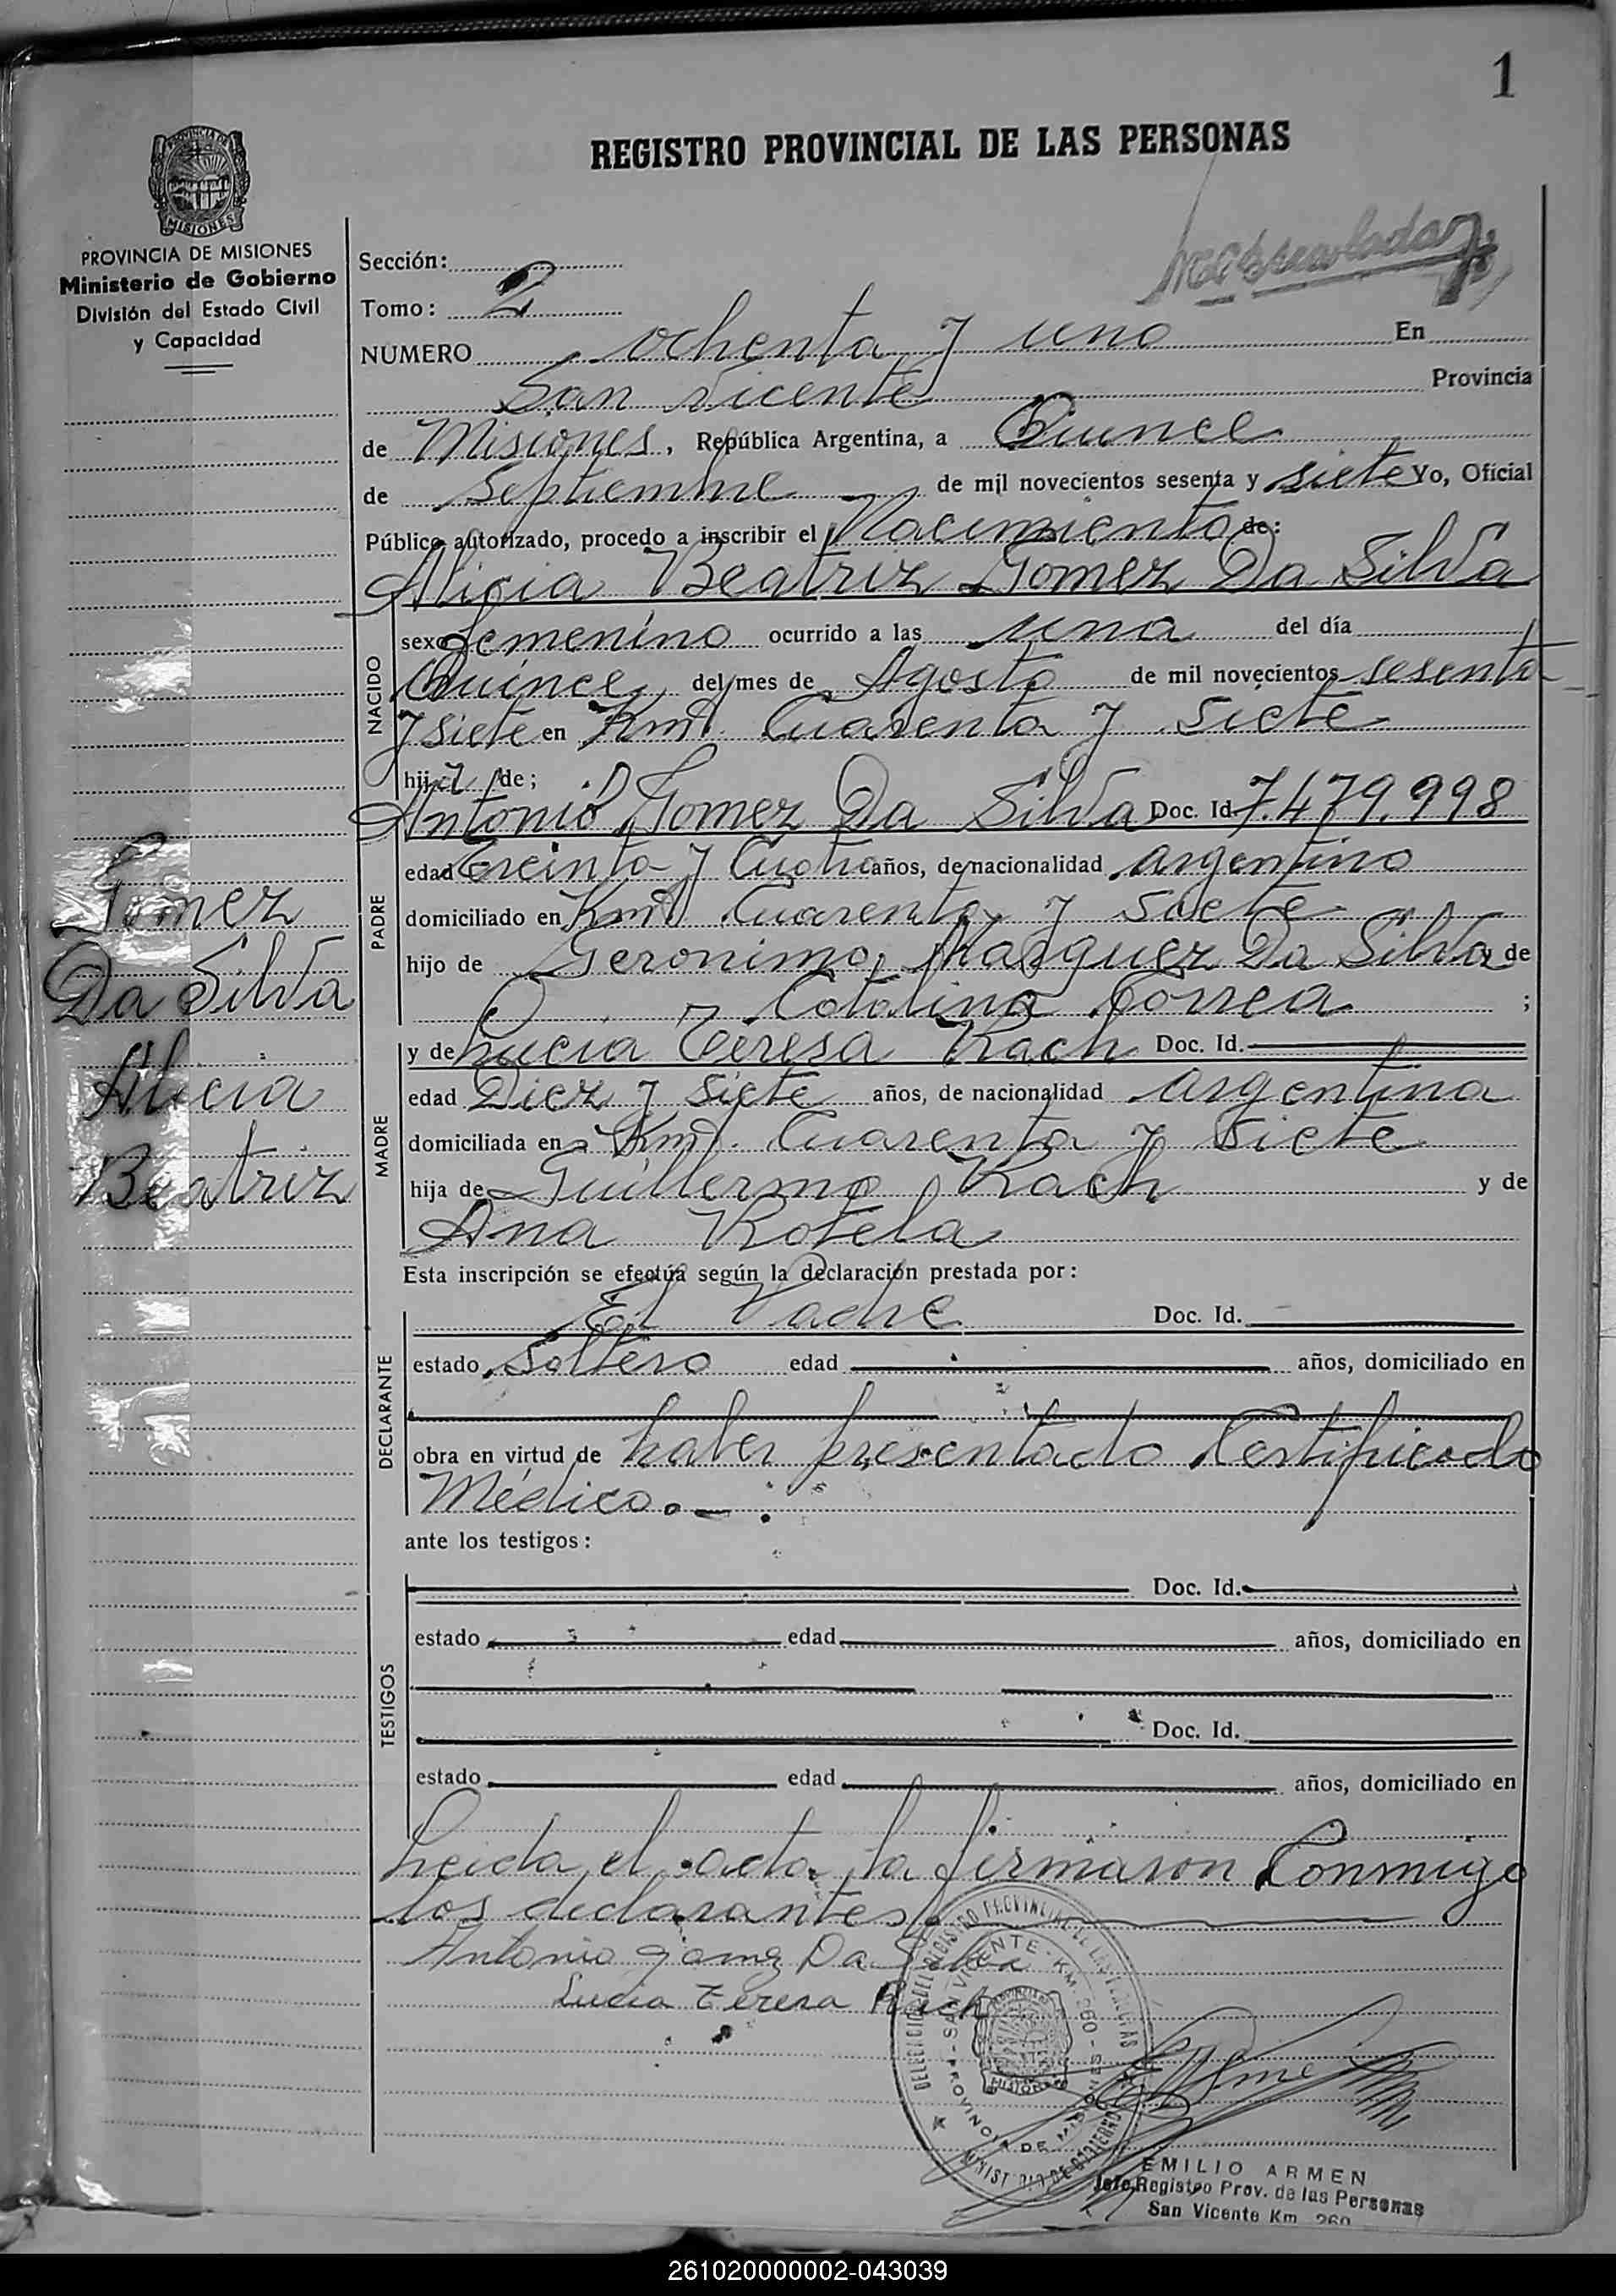 1
REGISTRO PROVINCIAL DE LAS PERSONAS
PROVINCIA DE MISIONES
Ministerio de Gobierno
División del Estado Civil
y Capacidad
Sección:
Tomo: 2
NUMERO ochenta y uno En
San Vicente Provincia
de Misiones, República Argentina, a Quince
de Septiembre de mil novecientos sesenta y siete Yo, Oficial
Público autorizado, procedo a inscribir el Nacimiento de:
Alicia Beatriz Gomez Da Silva
NACIDO
sexo femenino ocurrido a las una del día
Quince del mes de Agosto de mil novecientos sesenta
y siete en Km. Cuarenta y siete
hija de;
Antonio Gomez Da Silva Doc. Id. 7.479.998
PADRE
edad Treinta y Cuatro años, de nacionalidad argentino
domiciliado en Km. Cuarenta y siete
hijo de Geronimo Marquez Da Silva y de
Catalina Correa ;
Gomez
Da Silva
Alicia
Beatriz
y de Lucia Teresa Rach Doc. Id.
MADRE
edad Diez y siete años, de nacionalidad argentina
domiciliada en Km. Cuarenta y siete
hija de Guillermo Rach y de
Ana Rotela
Esta inscripción se efectúa según la declaración prestada por:
DECLARANTE
El Padre Doc. Id.
estado Soltero edad años, domiciliado en
obra en virtud de haber presentado Certificado
Médico.
ante los testigos:
TESTIGOS
Doc. Id.
estado edad años, domiciliado en
Doc. Id.
estado edad años, domiciliado en
Leida el acta la firmaron Conmigo
los declarantes.
Antonio gomez Da Silva
Lucia Teresa Rach
SAN VICENTE - KM. 260 - PROVINCIA DE MISIONES
EMILIO ARMEN
Jefe Registro Prov. de las Personas
San Vicente Km. 260
261020000002-043039